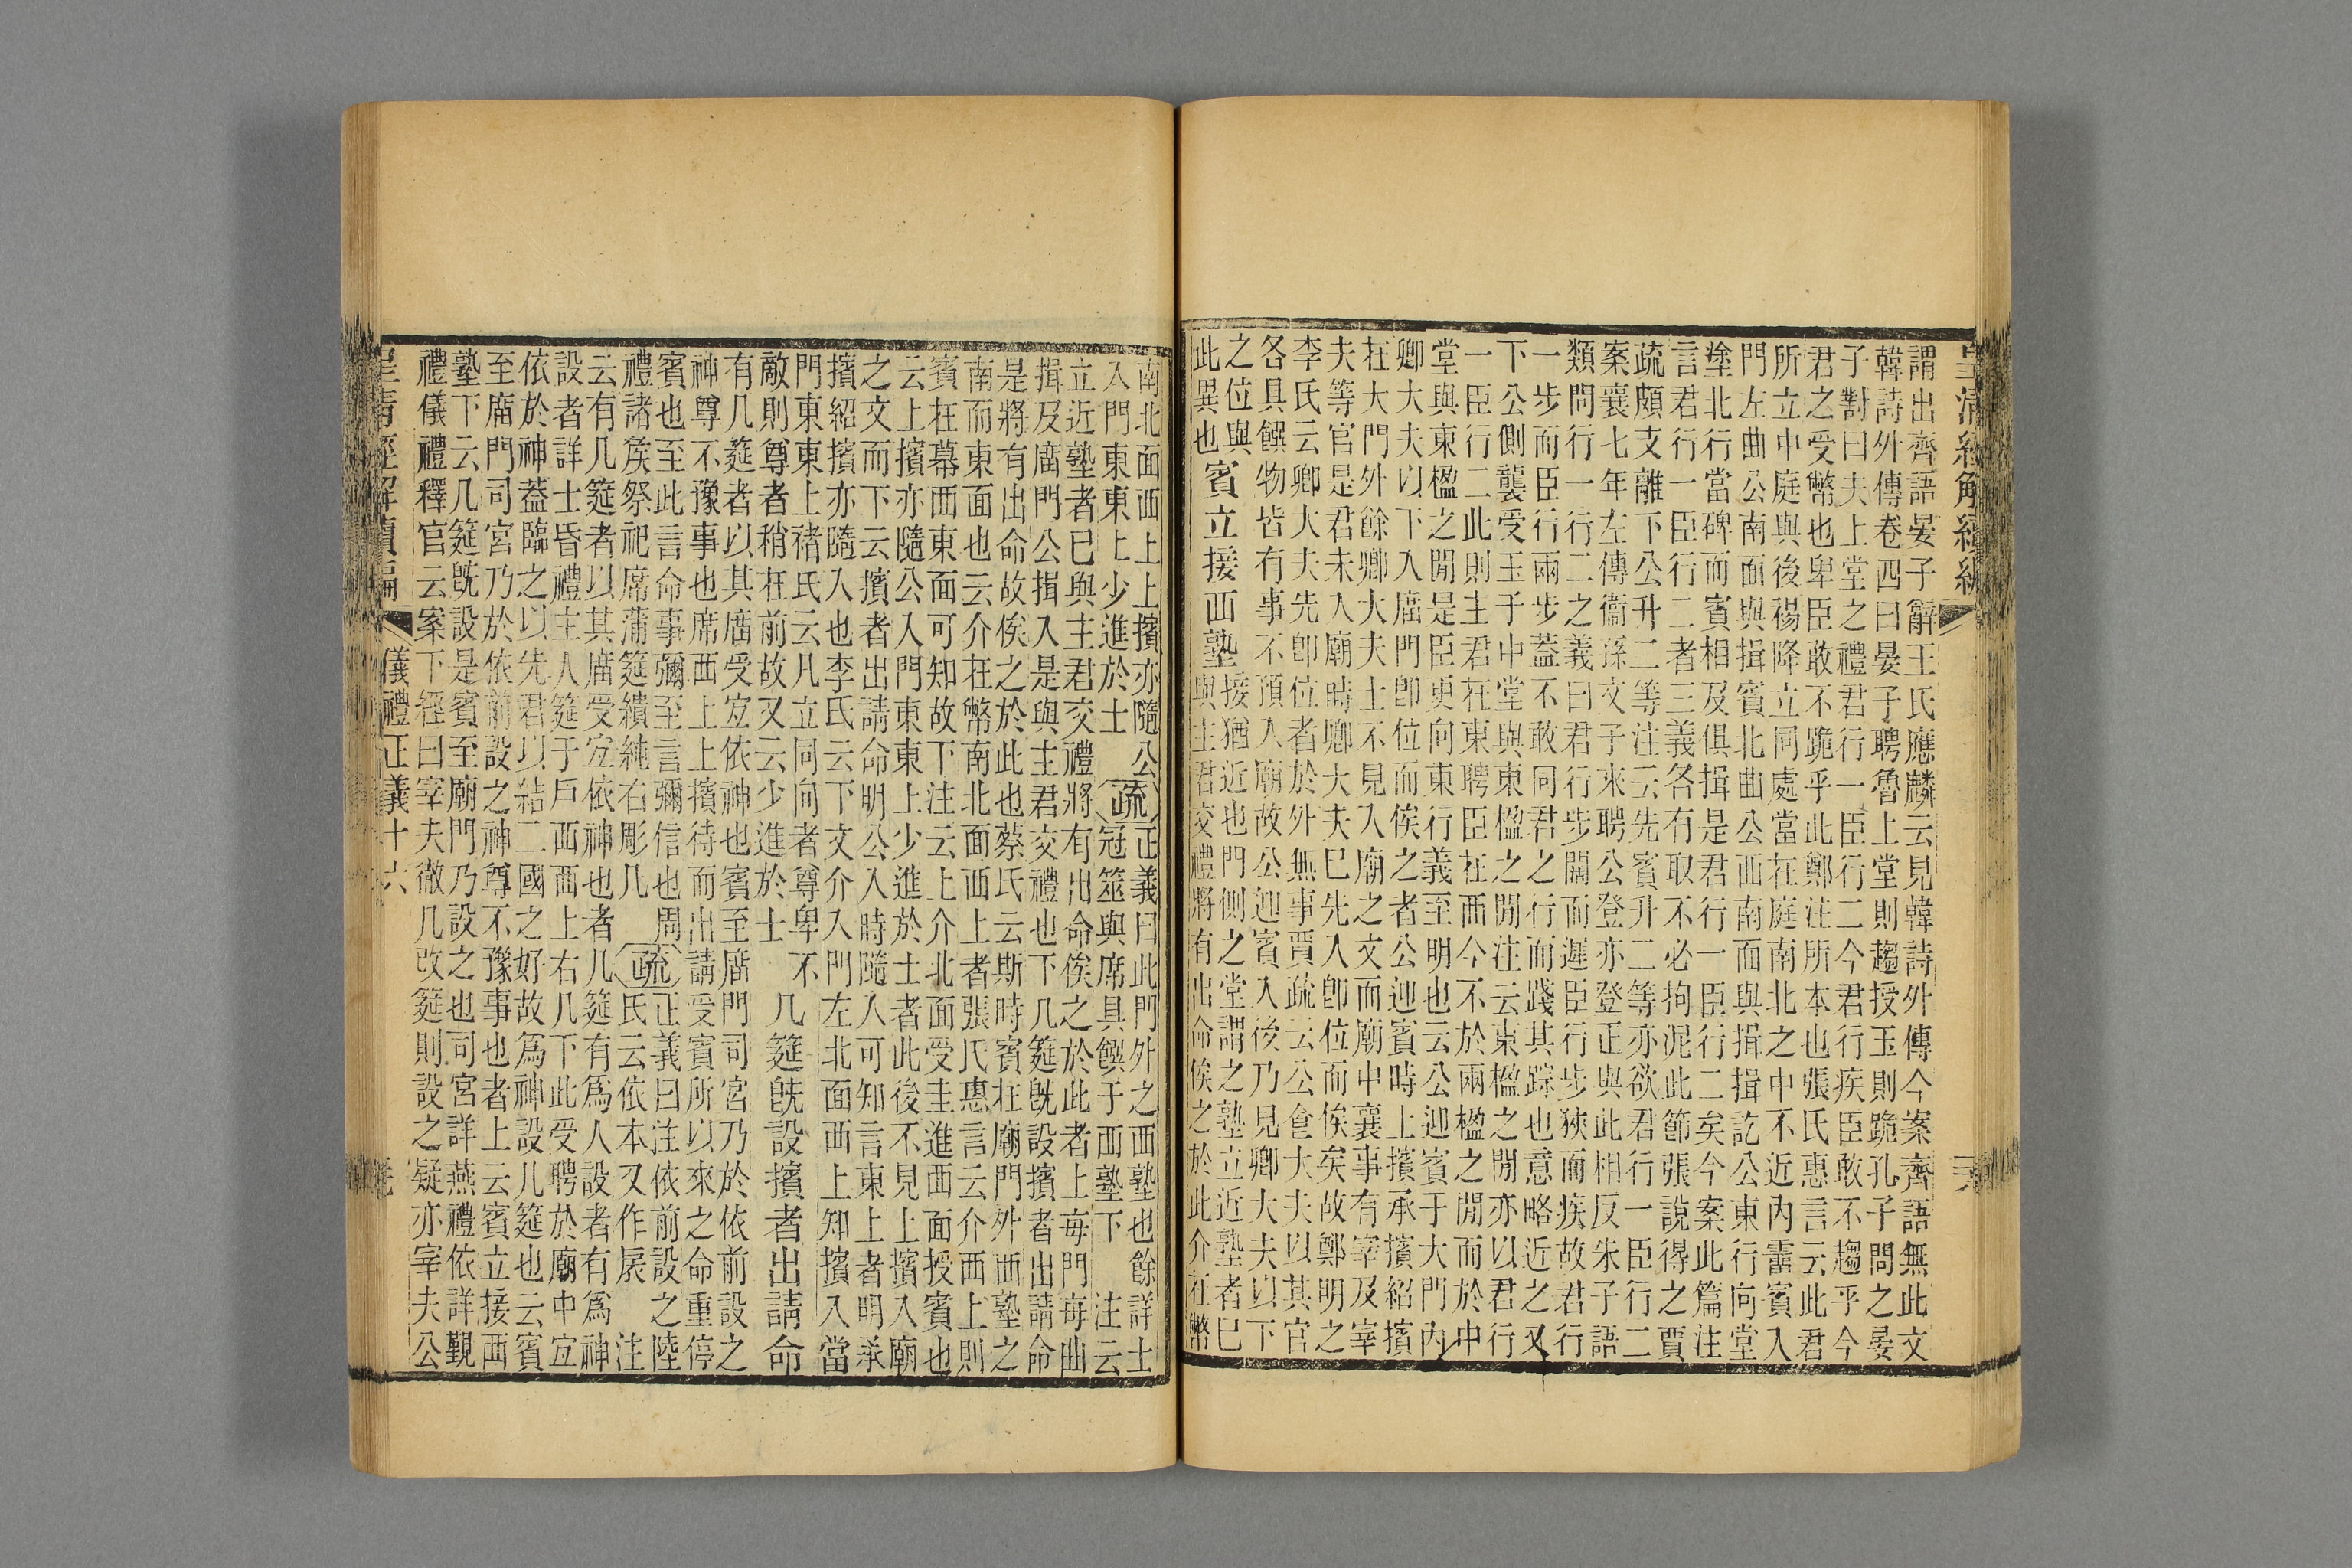 皇清經解續編
謂出齊語晏子辭王氏應麟云見韓詩外傳今案齊語無此文
韓詩外傳卷四曰晏子聘魯上堂則趨授玉則跪孔子問之晏
子對曰夫上堂之禮君行一臣行二今君行疾臣敢不趨乎今
君之受幣也卑臣敢不跪乎此鄭注所本也張氏惠言云此君
所立中庭與後裼降立同處當在庭南北之中不近內霤賓入
門左曲公南面與揖賓北曲公西南面與揖揖訖公東行向堂
塗北行當碑而賓相及俱揖是君行一臣行二矣今案此篇注
言君行一臣行二者三義各有取不必拘泥此節張說得之賈
疏頗支離下公升二等注云先賓升二等亦欲君行一臣行二
案襄七年左傳衞孫文子來聘公登亦登正與此相反朱子語
類問行一行二之義曰君行步闊而遲臣行步狹而疾故君行
一步而臣行兩步蓋不敢同君之行而踐其踪也意略近之又
下公側襲受玉于中堂與東楹之閒注云東楹之閒亦以君行
一臣行二此則主君在東聘臣在西今不於兩楹之閒而於中
堂與東楹之閒是臣更向東行義至明也云公迎賓于大門內
卿大夫以下入庿門卽位而俟之者公迎賓時上擯承擯紹擯
在大門外餘卿大夫士不見入廟之文而廟中襄事有宰及宰
夫等官是君未入廟時卿大夫已先入卽位而俟矣故鄭明之
李氏云卿大夫先卽位者於外無事賈疏云公食大夫以其官
各具饌物皆有事不預入廟故公迎賓入後乃見卿大夫以下
之位與
此異也
賓立接西塾
接猶近也門側之堂謂之塾立近塾者已
與主君交禮將有出命俟之於此介在幣
南北面西上上擯亦隨公
入門東東上少進於士
疏
正義曰此門外之西塾也餘詳士
冠筮與席具饌于西塾下 注云
立近塾者已與主君交禮將有出命俟之於此者上每門每曲
揖及庿門公揖入是與主君交禮也下几筵旣設擯者出請命
是將有出命故俟之於此也蔡氏云斯時賓在廟門外西塾之
南而東面也云介在幣南北面西上者張氏惠言云介西上則
賓在幕西東面可知故下注云上介北面受圭進西面授賓也
云上擯亦隨公入門東東上少進於士者此後不見上擯入廟
之文而下云擯者出請命明公入時隨入可知言東上者明承
擯紹擯亦隨入也李氏云下文介入門左北面西上知擯入當
門東東上褚氏云凡立同向者尊卑不
敵則尊者稍在前故又云少進於士
几筵旣設擯者出請命
有几筵者以其庿受宜依神也賓至庿門司宮乃於依前設之
神尊不豫事也席西上上擯待而出請受賓所以來之命重停
賓也至此言命事彌至言彌信也周
禮諸矦祭祀席蒲筵繢純右彫几
疏
正義曰注依前設之陸
氏云依本又作扆 注
云有几筵者以其庿受宜依神也者几筵有爲人設者有爲神
設者詳士昏禮主人筵于戶西西上右几下此受聘於廟中宜
依於神蓋臨之以先君以結二國之好故爲神設几筵也云賓
至庿門司宮乃於依前設之神尊不豫事也者上云賓立接西
塾下云几筵旣設是賓至廟門乃設之也司宮詳燕禮依詳覲
禮儀禮釋官云案下經曰宰夫徹几改筵則設之疑亦宰夫公
皇清經解續編 儀禮正義十六